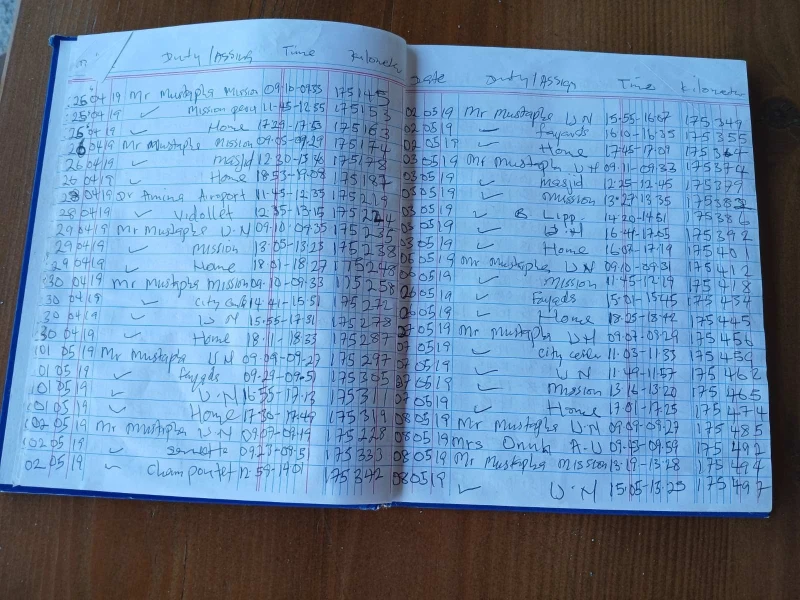 Duty/Assign Time Kilometer
25 04 19 Mr Mustapha Mission 09-10-09:55 175145
25 04 19 ✓ Mission 11-45-12:55 175153
25 04 19 ✓ Home 17:29-17:53 175163
26 04 19 Mr Mustapha Mission 09:05-09:29 175174
26 04 19 ✓ masjid 12:30-13:46 175178
26 04 19 ✓ Home 18:53-19:08 175187
28 04 19 Dr Amina Airport 11-45-12:35 175219
28 04 19 ✓ Vidollet 12:35-13:15 175224
29 04 19 Mr Mustapha U.N 09:10-09:35 175235
29 04 19 ✓ mission 13:05-13:23 175238
29 04 19 ✓ Home 18:01-18:27 175248
30 04 19 Mr Mustapha Mission 09-10-09:33 175258
30 04 19 ✓ city 14:41-15:51 175272
30 04 19 ✓ U.N 15:55-17:31 175278
30 04 19 ✓ Home 18:11-18:33 175287
01 05 19 Mr Mustapha U.N 09:09-09:27 175297
01 05 19 ✓ Fayards 09:29-09:51 175305
01 05 19 ✓ U.N 16:55-17:13 17531
01 05 19 ✓ Home 17:30-17:49 175319
02 05 19 Mr Mustapha U.N 09:07-09:19 175228
02 05 19 ✓ 09:29-09:51 175333
02 05 19 ✓ Champoutet 12:59-14:01 175342
Date Duty/Assign Time Kilometer
02 05 19 Mr Mustapha U.N 15:55-16:07 175349
02 05 19 ✓ Fayards 16:10-16:35 175355
02 05 19 ✓ Home 17:45-17:09 175364
03 05 19 Mr Mustapha U.N 09:11-09:33 175374
03 05 19 ✓ masjid 12:25-12:45 175379
03 05 19 ✓ mission 13:27-13:35 175382
03 05 19 ✓ B Lipp 14:20-14:51 175386
03 05 19 ✓ U.N 16:41-17:05 175392
03 05 19 ✓ Home 16:07-17:19 175401
06 05 19 Mr Mustapha U.N 09:10-09:31 175412
06 05 19 ✓ mission 11-45-12:29 175418
06 05 19 ✓ Fayads 15:01-15:45 175434
06 05 19 ✓ Home 18:25-18:42 175445
07 05 19 Mr Mustapha U.N 09:07-09:29 175456
07 05 19 ✓ city 11-03-11:33 175459
07 05 19 ✓ U.N 11:49-11:57 175462
07 05 19 ✓ mission 13:16-13:20 175465
07 05 19 ✓ Home 17:01-17:25 175474
08 05 19 Mr Mustapha U.N 09:09-09:27 175485
08 05 19 Mrs Onuh A.U 09:45-09:59 175492
08 05 19 Mr Mustapha Mission 13:19-13:28 175494
08 05 19 ✓ U.N 15:05-15:25 175497